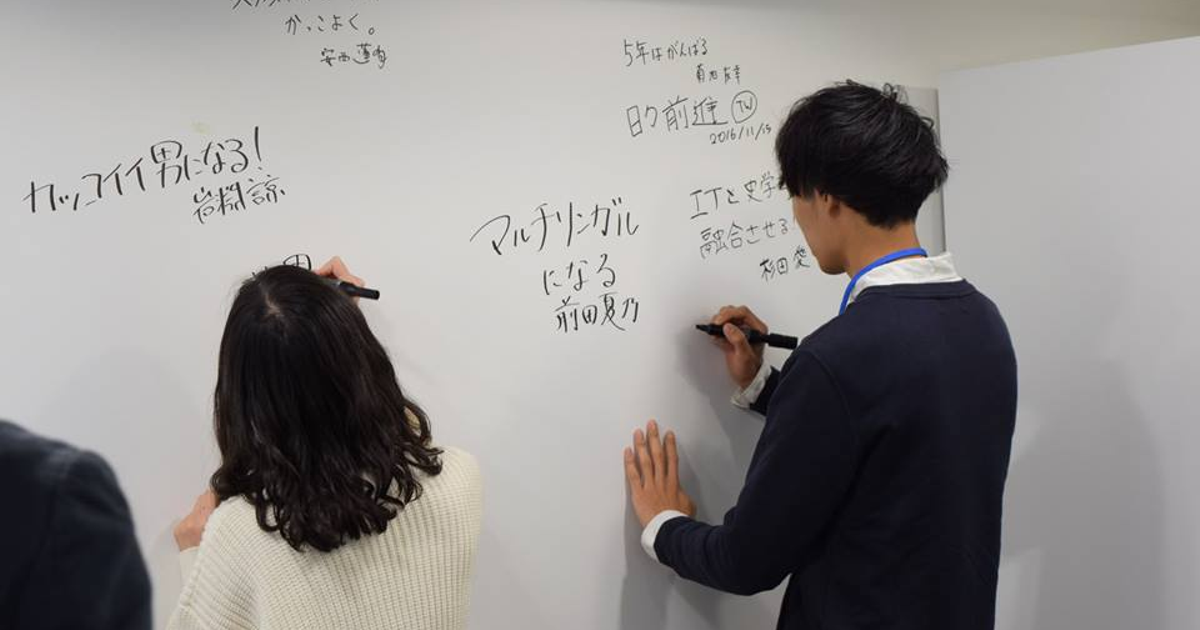 かっこよく。
安西
カッコイイ男になる!
岩渕諒
マルチリンガル
になる
前田夏乃
5年はがんばる
日々前進 TW
2016/11/15
ITと史学
融合させる
杉田愛
男